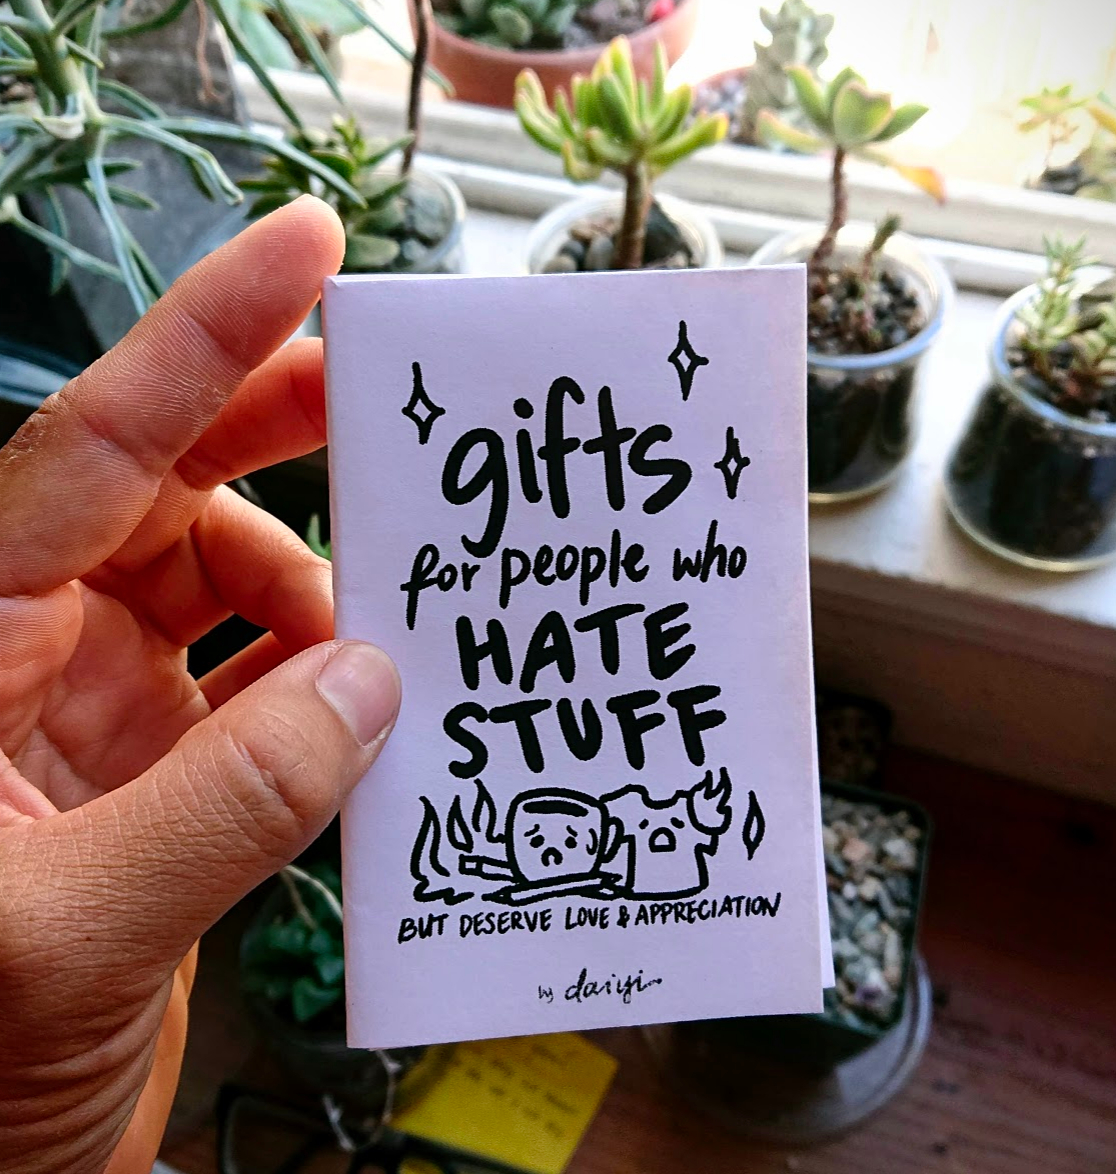 gifts
for people who
HATE
STUFF
BUT DESERVE LOVE & APPRECIATION
by daiyi